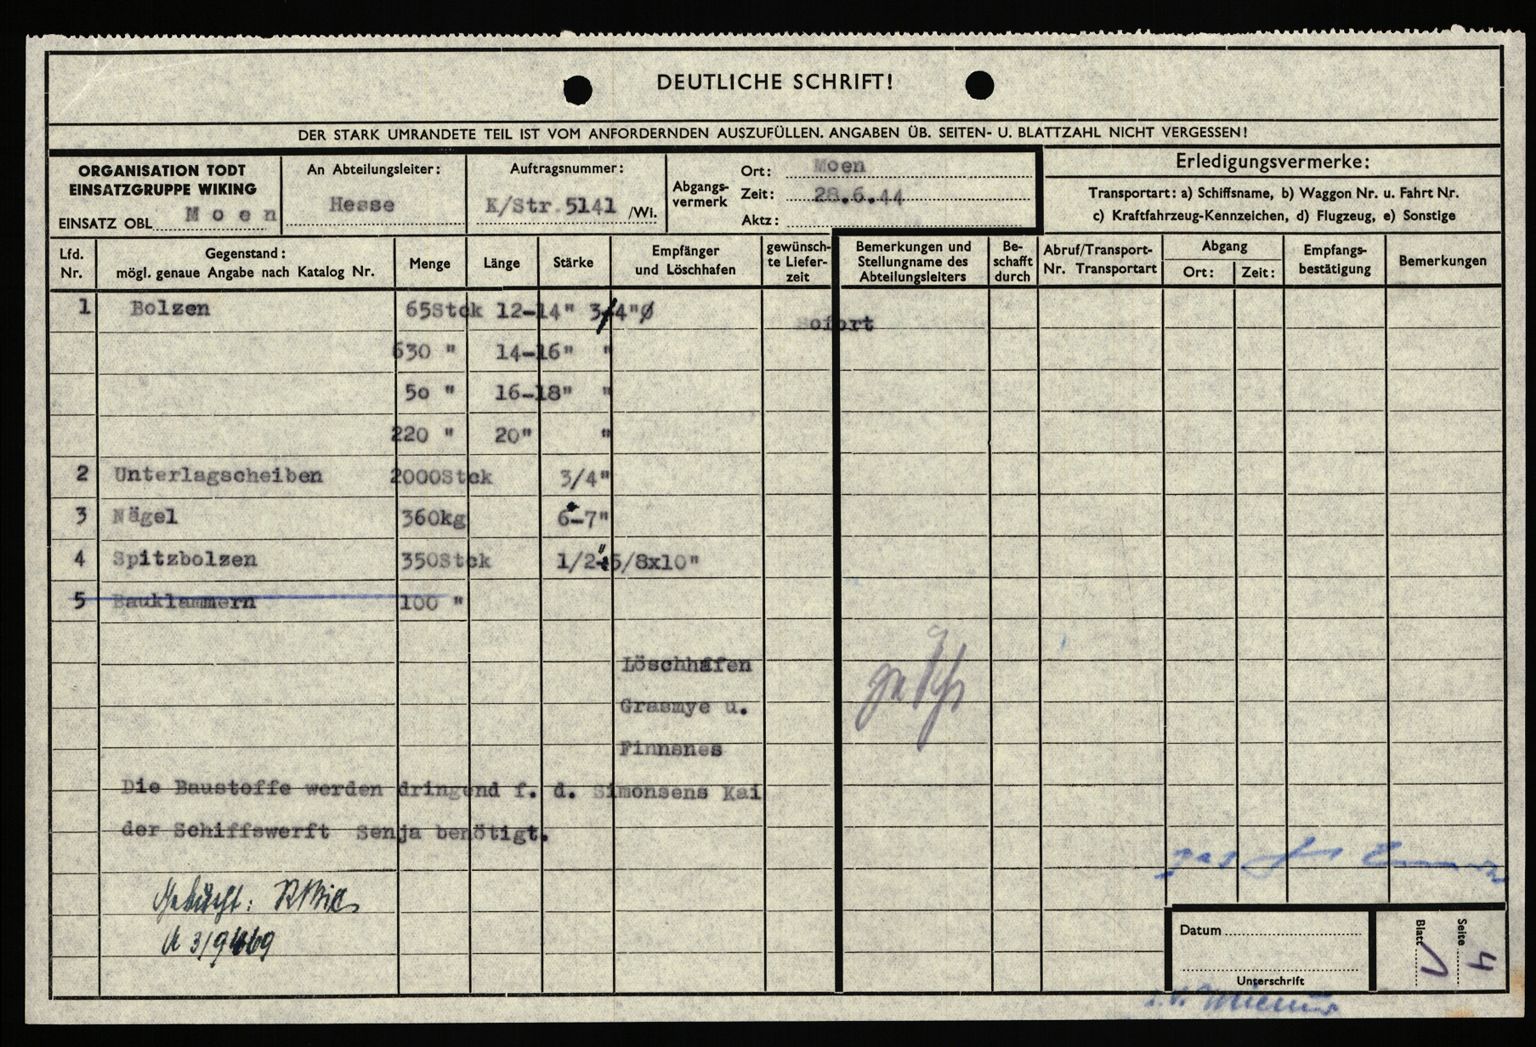 DEUTLICHE SCHRIFT!
DER STARK UMRANDETE TEIL IST VOM ANFORDERNDEN AUSZUFÜLLEN. ANGABEN ÜB. SEITEN- U. BLATTZAHL NICHT VERGESSEN!
ORGANISATION TODT
EINSATZGRUPPE WIKING
EINSATZ OBL Moen
An Abteilungsleiter:
Hesse
Auftragsnummer:
K/Str.5141 /Wi.
Abgangs-
vermerk
Ort: Moen
Zeit: 28.6.44
Aktz:
Erledigungsvermerke:
Transportart: a) Schiffsname, b) Waggon Nr. u. Fahrt Nr.
c) Kraftfahrzeug-Kennzeichen, d) Flugzeug, e) Sonstige
Lfd.
Nr.
Gegenstand:
mögl. genaue Angabe nach Katalog Nr.
Menge
Länge
Stärke
Empfänger
und Löschhafen
gewünsch-
te Liefer-
zeit
Bemerkungen und
Stellungname des
Abteilungsleiters
Be-
schafft
durch
Abruf/Transport-
Nr. Transportart
Abgang
Ort: Zeit:
Empfangs-
bestätigung
Bemerkungen
1 Bolzen 65Stck 12-14" 3/4"Ø
sofort
630 " 14-16" "
50 " 16-18" "
220 " 20" "
2 Unterlagscheiben 2000Stck 3/4"
3 Nägel 360kg 6-7"
4 Spitzbolzen 350Stck 1/2"-5/8x10"
5 Bauklammern 100 "
Löschhäfen
Grasmye u.
Finnsnes
Die Baustoffe werden dringend f. d. Simonsens Kai
der Schiffswerft Senja benötigt.
Gebucht:
Datum
Unterschrift
Seite 4
Blatt